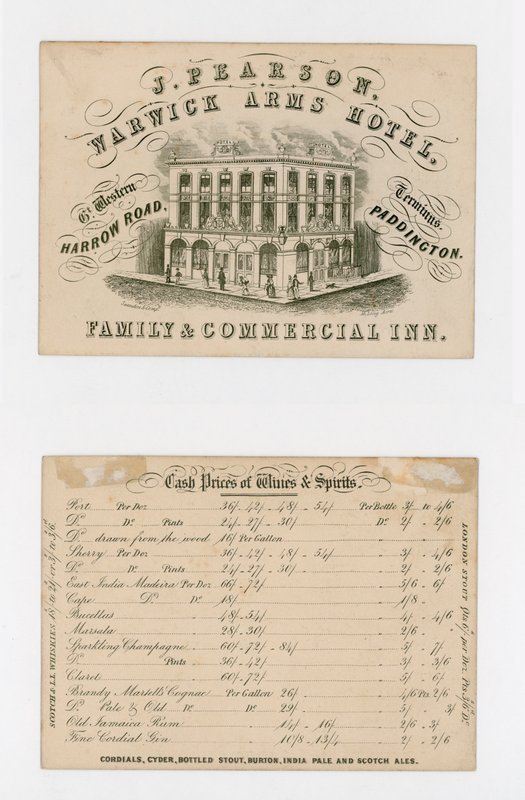 J. PEARSON,
WARWICK ARMS HOTEL,
HOTEL
Gt. Western
HARROW ROAD,
Terminus.
PADDINGTON.
FAMILY & COMMERCIAL INN.
Cash Prices of Wines & Spirits.
Port Per Doz 36/- 42/- 48/- 54/ Per Bottle 3/ to 4/6
Do. Do. Pints 24/- 27/- 30/ Do. 2/ - 2/6
Do. drawn from the wood 16/ Per Gallon
Sherry Per Doz 36/- 42/- 48/- 54/ 3/ - 4/6
Do. Do. Pints 24/- 27/- 30/ 2/ - 2/6
East India Madeira Per Doz 66/- 72/ 5/6 - 6/
Cape Do. Do. 18/ 1/8
Bucellas 48/- 54/ 4/ - 4/6
Marsala 28/- 30/ 2/6
Sparkling Champagne 60/- 72/- 84/ 5/ - 7/
Do. Pints 36/- 42/ 3/ - 3/6
Claret 60/- 72/ 5/ - 6/
Brandy Martell's Cognac Per Gallon 26/ 4/6 Pts 2/6
Do. Pale & Old Do. Do. 29/ 5/ - 3/
Old Jamaica Rum 14/ - 16/ 2/6 - 3/
Fine Cordial Gin 10/8 - 13/4 2/ - 2/6
CORDIALS, CYDER, BOTTLED STOUT, BURTON, INDIA PALE AND SCOTCH ALES.
SCOTCH & I.I. WHISKIES 18/ to 21/ or 3/ to 3/6.
LONDON STOUT per Doz. Pts 3/6 Do.